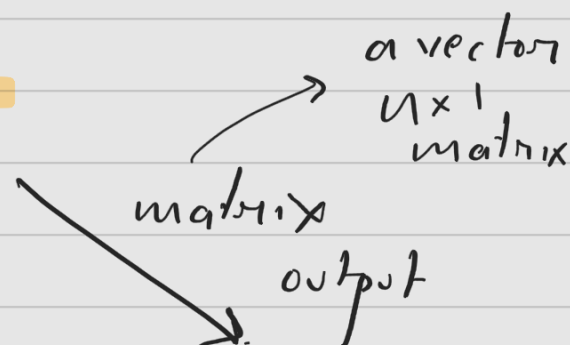 a vector
n x 1
matrix
matrix
output